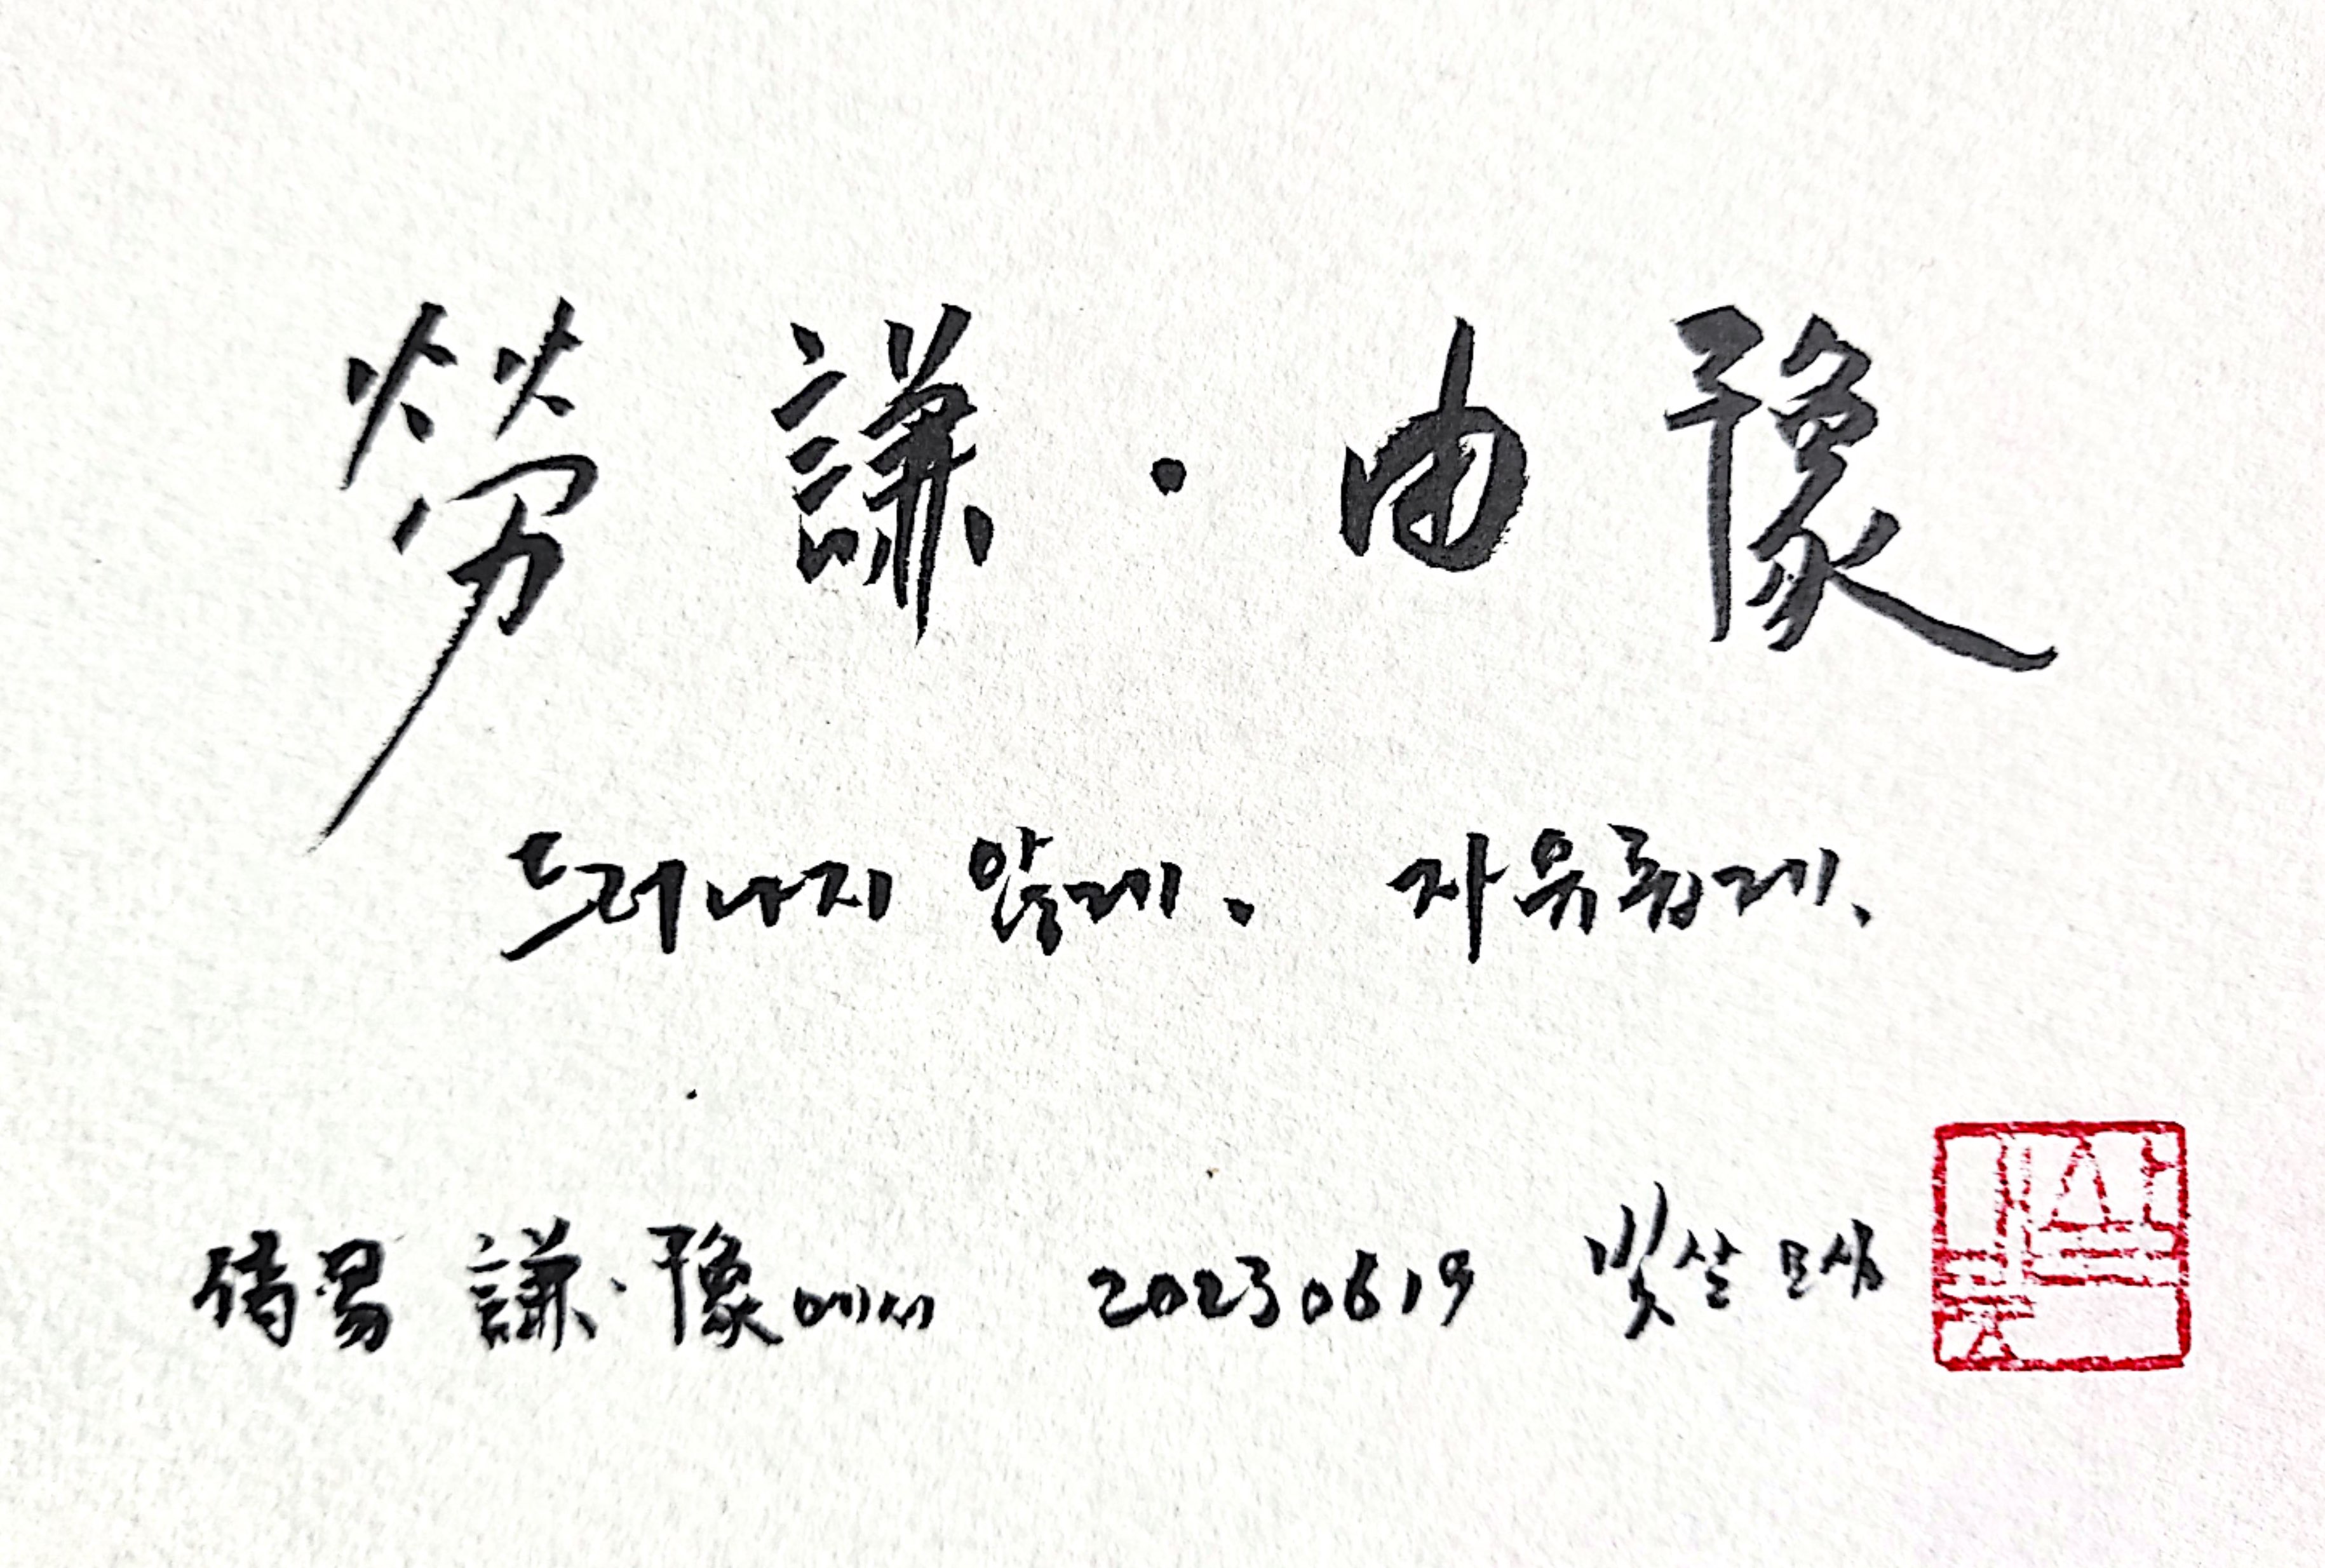 勞謙·由豫
드러나지 않게. 자유롭게.
謙·豫에서 20230619 빛살